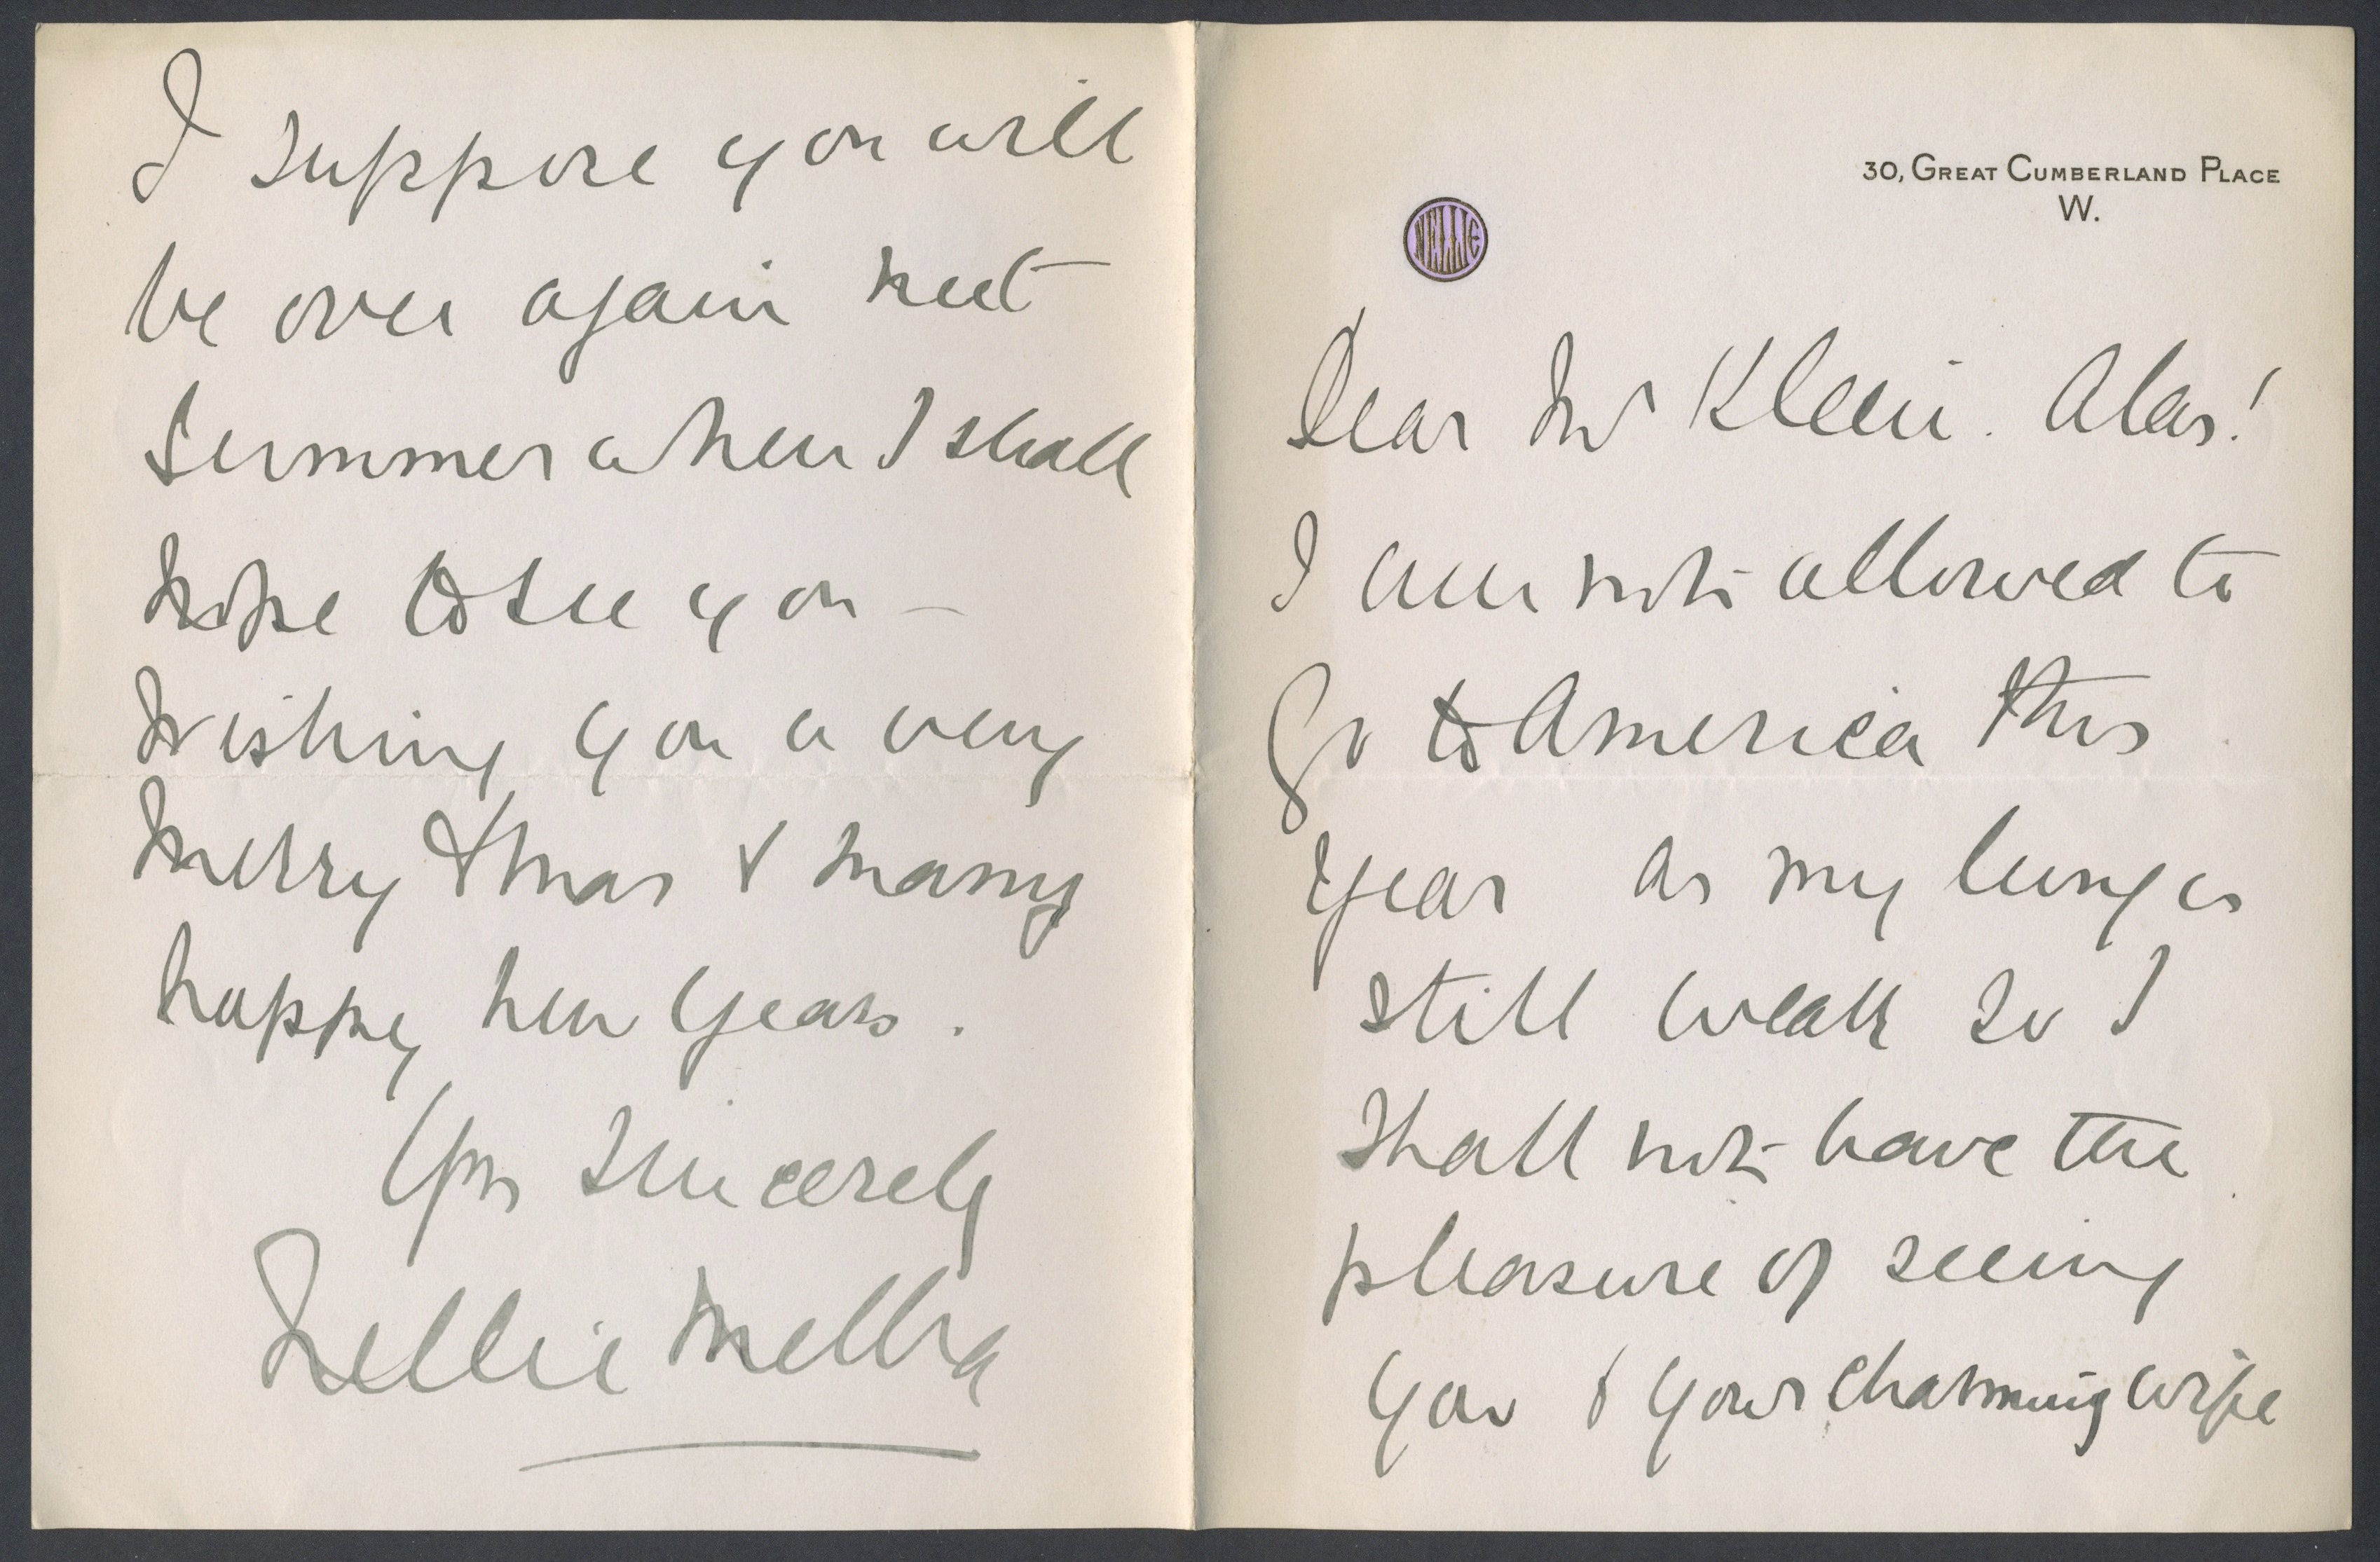 30, GREAT CUMBERLAND PLACE
W.
NELLIE
Dear Mr Klein. Alas!
I am not allowed to
go to America this
year as my lung is
still weak so I
shall not have the
pleasure of seeing
you & your charming wife
I suppose you will
be over again next
Summer when I shall
hope to see you –
Wishing you a very
merry Xmas & many
happy new years.
Yrs sincerely
Nellie Melba